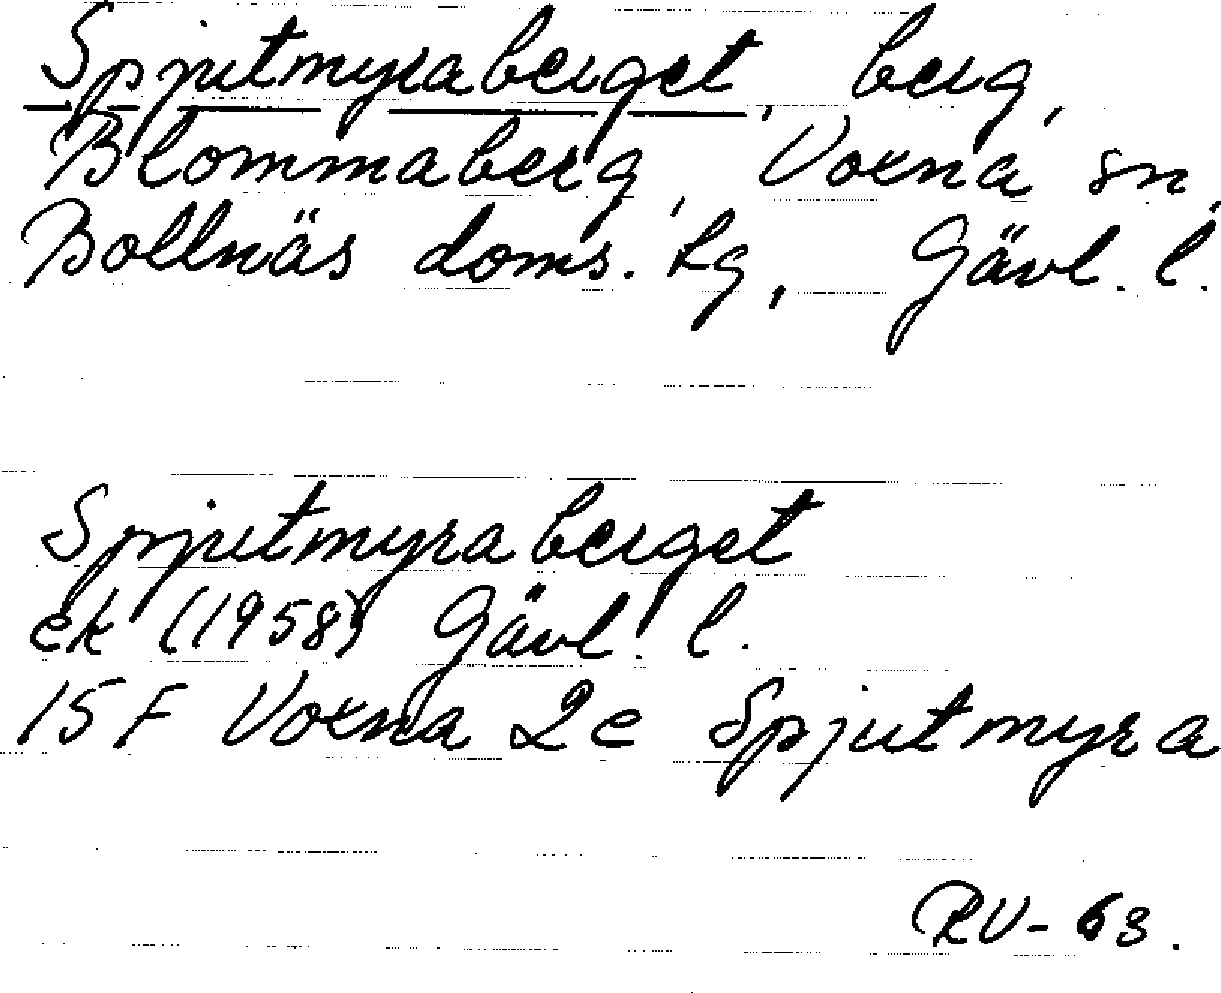 Spjutmyraberget, berg,
Blommaberg, Voxna sn,
Bollnäs doms. lg, Gävl. l.
Spjutmyraberget
ek (1958) Gävl. l.
15 F Voxna 2e Spjutmyra
RV-63.